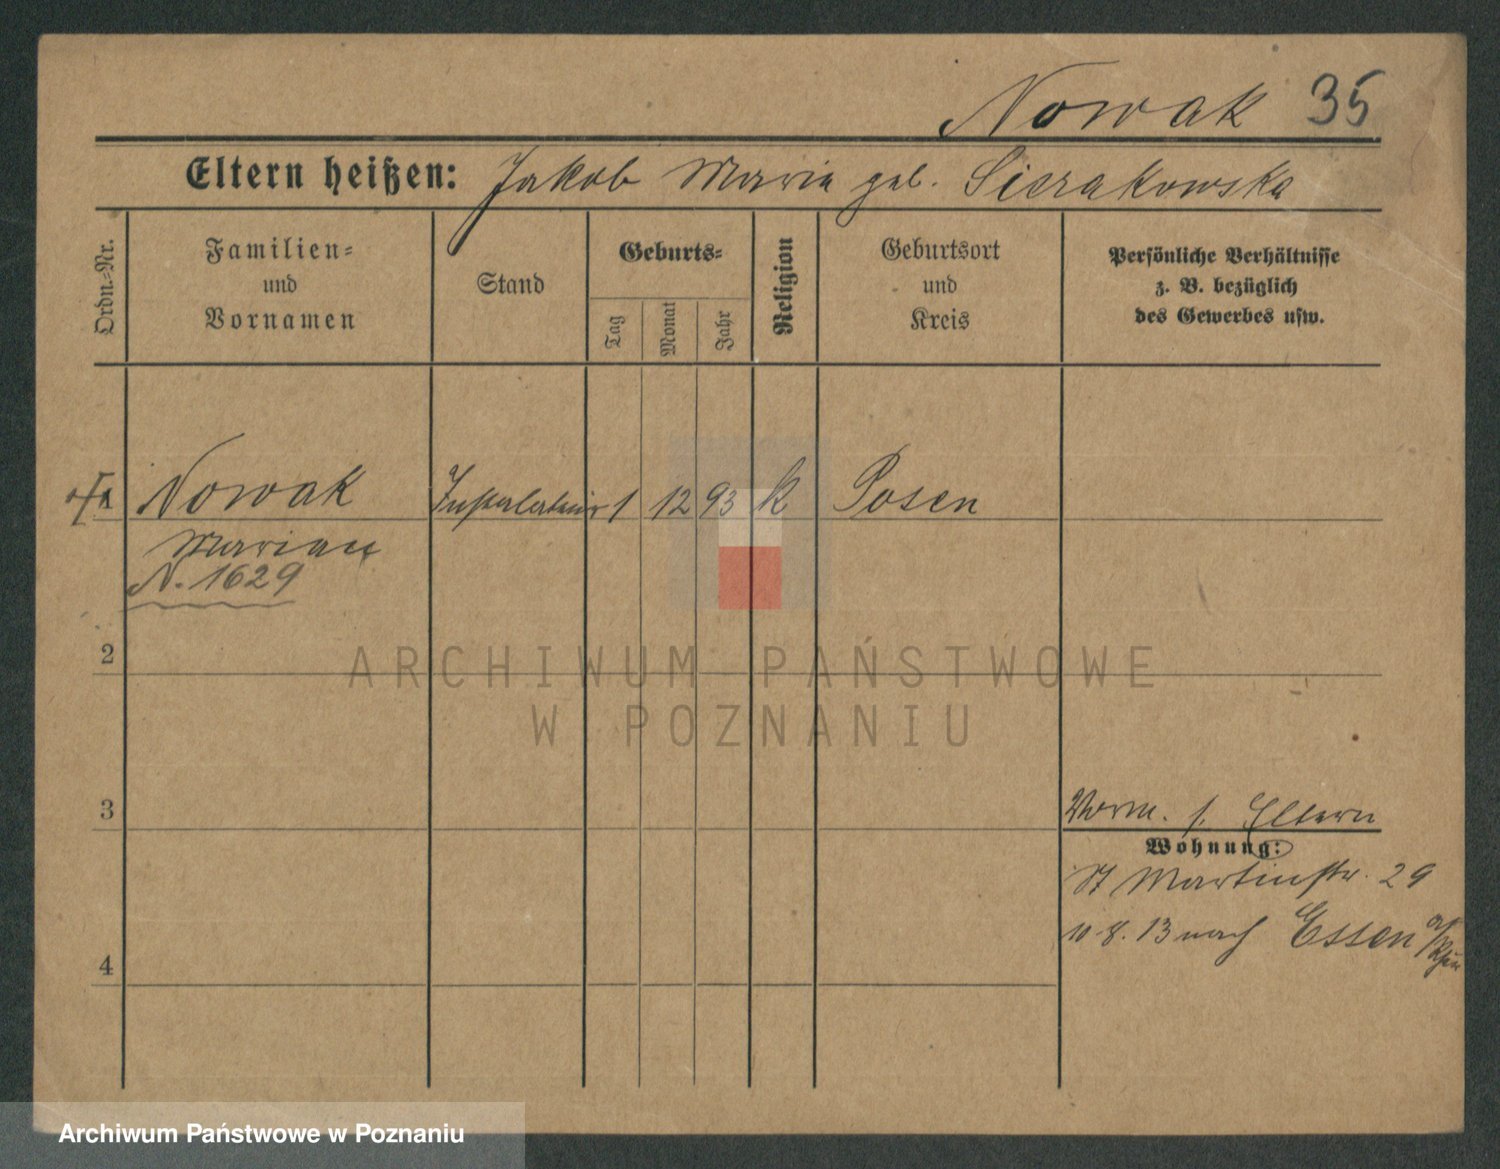 Nowak 35
Eltern heißen: Jakob Maria geb. Sierakowska
Ordn.-Nr.
Familien- und Vornamen
Stand
Geburts-
Tag
Monat
Jahr
Religion
Geburtsort und Kreis
Persönliche Verhältnisse
z. B. bezüglich
des Gewerbes usw.
1 Nowak Installateur 1 12 93 k Posen
Marian
N. 1629
2
ARCHIWUM PAŃSTWOWE
W POZNANIU
3
Vorm. s. Eltern
Wohnung:
St Martinstr. 29
10.8.13 nach Essen a/
4
Archiwum Państwowe w Poznaniu